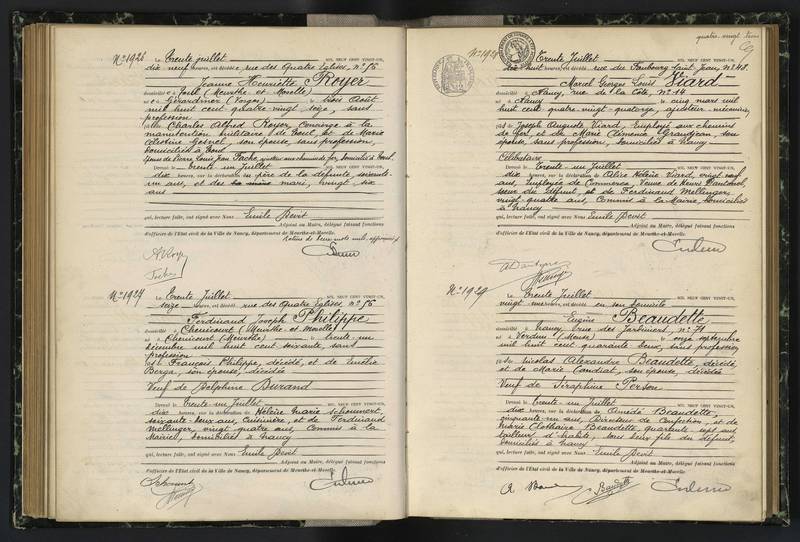 N° 1926
Le Trente juillet MIL NEUF CENT VINGT-UN,
dix neuf heures, est décédée rue des Quatre Eglises, n° 56
Jeanne Henriette Royer
domiciliée à Toul (Meurthe-et-Moselle)
née à Gérardmer (Vosges) le trois Août
mil huit cent quatre-vingt seize, sans
profession
fille de Charles Alfred Royer, Concierge à la
manutention militaire de Toul, et de Marie
Célestine son épouse, sans profession,
domiciliés à Toul
Epouse de Pierre Louis Jean aux chemins de fer, domicilié à Toul.
Dressé le trente-un Juillet MIL NEUF CENT VINGT-UN,
dix heures, sur la déclaration de père de la défunte, soixante-
un ans, et des mari, vingt six
ans
qui, lecture faite, ont signé avec Nous Emile Devit
Adjoint au Maire, délégué faisant fonctions
d'officier de l'Etat civil de la Ville de Nancy, département de Meurthe-et-Moselle.
Rature de deux mots nuls, approuvée
N° 1927
Le Trente Juillet MIL NEUF CENT VINGT-UN,
seize heures, est décédé rue des Quatre Eglises, n° 56
Ferdinand Joseph Philippe
domicilié à Chenicourt (Meurthe-et-Moselle)
né à Chenicourt (Meurthe) le trente-un
décembre mil huit cent soixante, sans
profession
fils de François Philippe, décédé, et de
Berga, son épouse, décédée
Veuf de Delphine Durand
Dressé le trente-un Juillet MIL NEUF CENT VINGT-UN,
dix heures, sur la déclaration de Hélène Marie
soixante-deux ans, Cuisinière, et de Ferdinand
Mellinger, vingt quatre ans, Commis à la
Mairie, domiciliés à Nancy
qui, lecture faite, ont signé avec Nous Emile Devit
Adjoint au Maire, délégué faisant fonctions
d'officier de l'Etat civil de la Ville de Nancy, département de Meurthe-et-Moselle.
quatre-vingt trois
N° 1928
Le Trente Juillet MIL NEUF CENT VINGT-UN,
dix huit heures, est décédé rue du Faubourg Saint Jean, n° 48
Marcel Georges Louis Viard
domicilié à Nancy, rue de la Côte, n° 14
né à Nancy le cinq mars mil
huit cent quatre-vingt-quatorze, ajusteur-mécanicien
fils de Joseph Auguste Viard, Employé aux chemins
de fer, et de Marie Clémence Grandjean, son
épouse, sans profession, domiciliés à Nancy
Célibataire
Dressé le Trente-un Juillet MIL NEUF CENT VINGT-UN,
dix heures, sur la déclaration de Alice Hélène Viard, vingt-neuf
ans, Employée de Commerce, Veuve de Henri
soeur du défunt, et de Ferdinand Mellinger,
vingt-quatre ans, Commis à la Mairie, domiciliés
à Nancy
qui, lecture faite, ont signé avec Nous Emile Devit
Adjoint au Maire, délégué faisant fonctions
d'officier de l'Etat civil de la Ville de Nancy, département de Meurthe-et-Moselle.
N° 1929
Le Trente Juillet MIL NEUF CENT VINGT-UN,
vingt heures, est décédé en son domicile
Eugène Beaudette
domicilié à Nancy, rue des Jardiniers, n° 71
né à Verdun (Meuse) le onze septembre
mil huit cent quarante deux, sans profession
fils de Nicolas Alexandre Beaudette, décédé,
et de Marie Candiat, son épouse, décédée
Veuf de Séraphine Person
Dressé le Trente-un Juillet MIL NEUF CENT VINGT-UN,
dix heures, sur la déclaration de Amédé Beaudette,
cinquante-un ans, Directeur de Confection, et de
Marie Clothaire Beaudette, quarante-sept ans,
tailleur d'habits, tous deux fils du défunt,
domiciliés à Nancy
qui, lecture faite, ont signé avec Nous Emile Devit
Adjoint au Maire, délégué faisant fonctions
d'officier de l'Etat civil de la Ville de Nancy, département de Meurthe-et-Moselle.
Beaudette